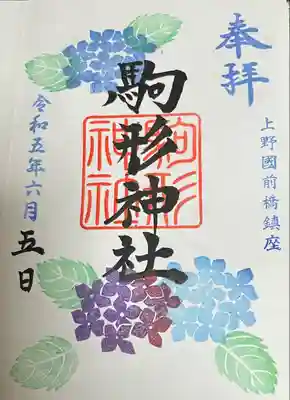 奉拝
上野國前橋鎮座
駒形神社
駒形
神社
令和五年六月
五日